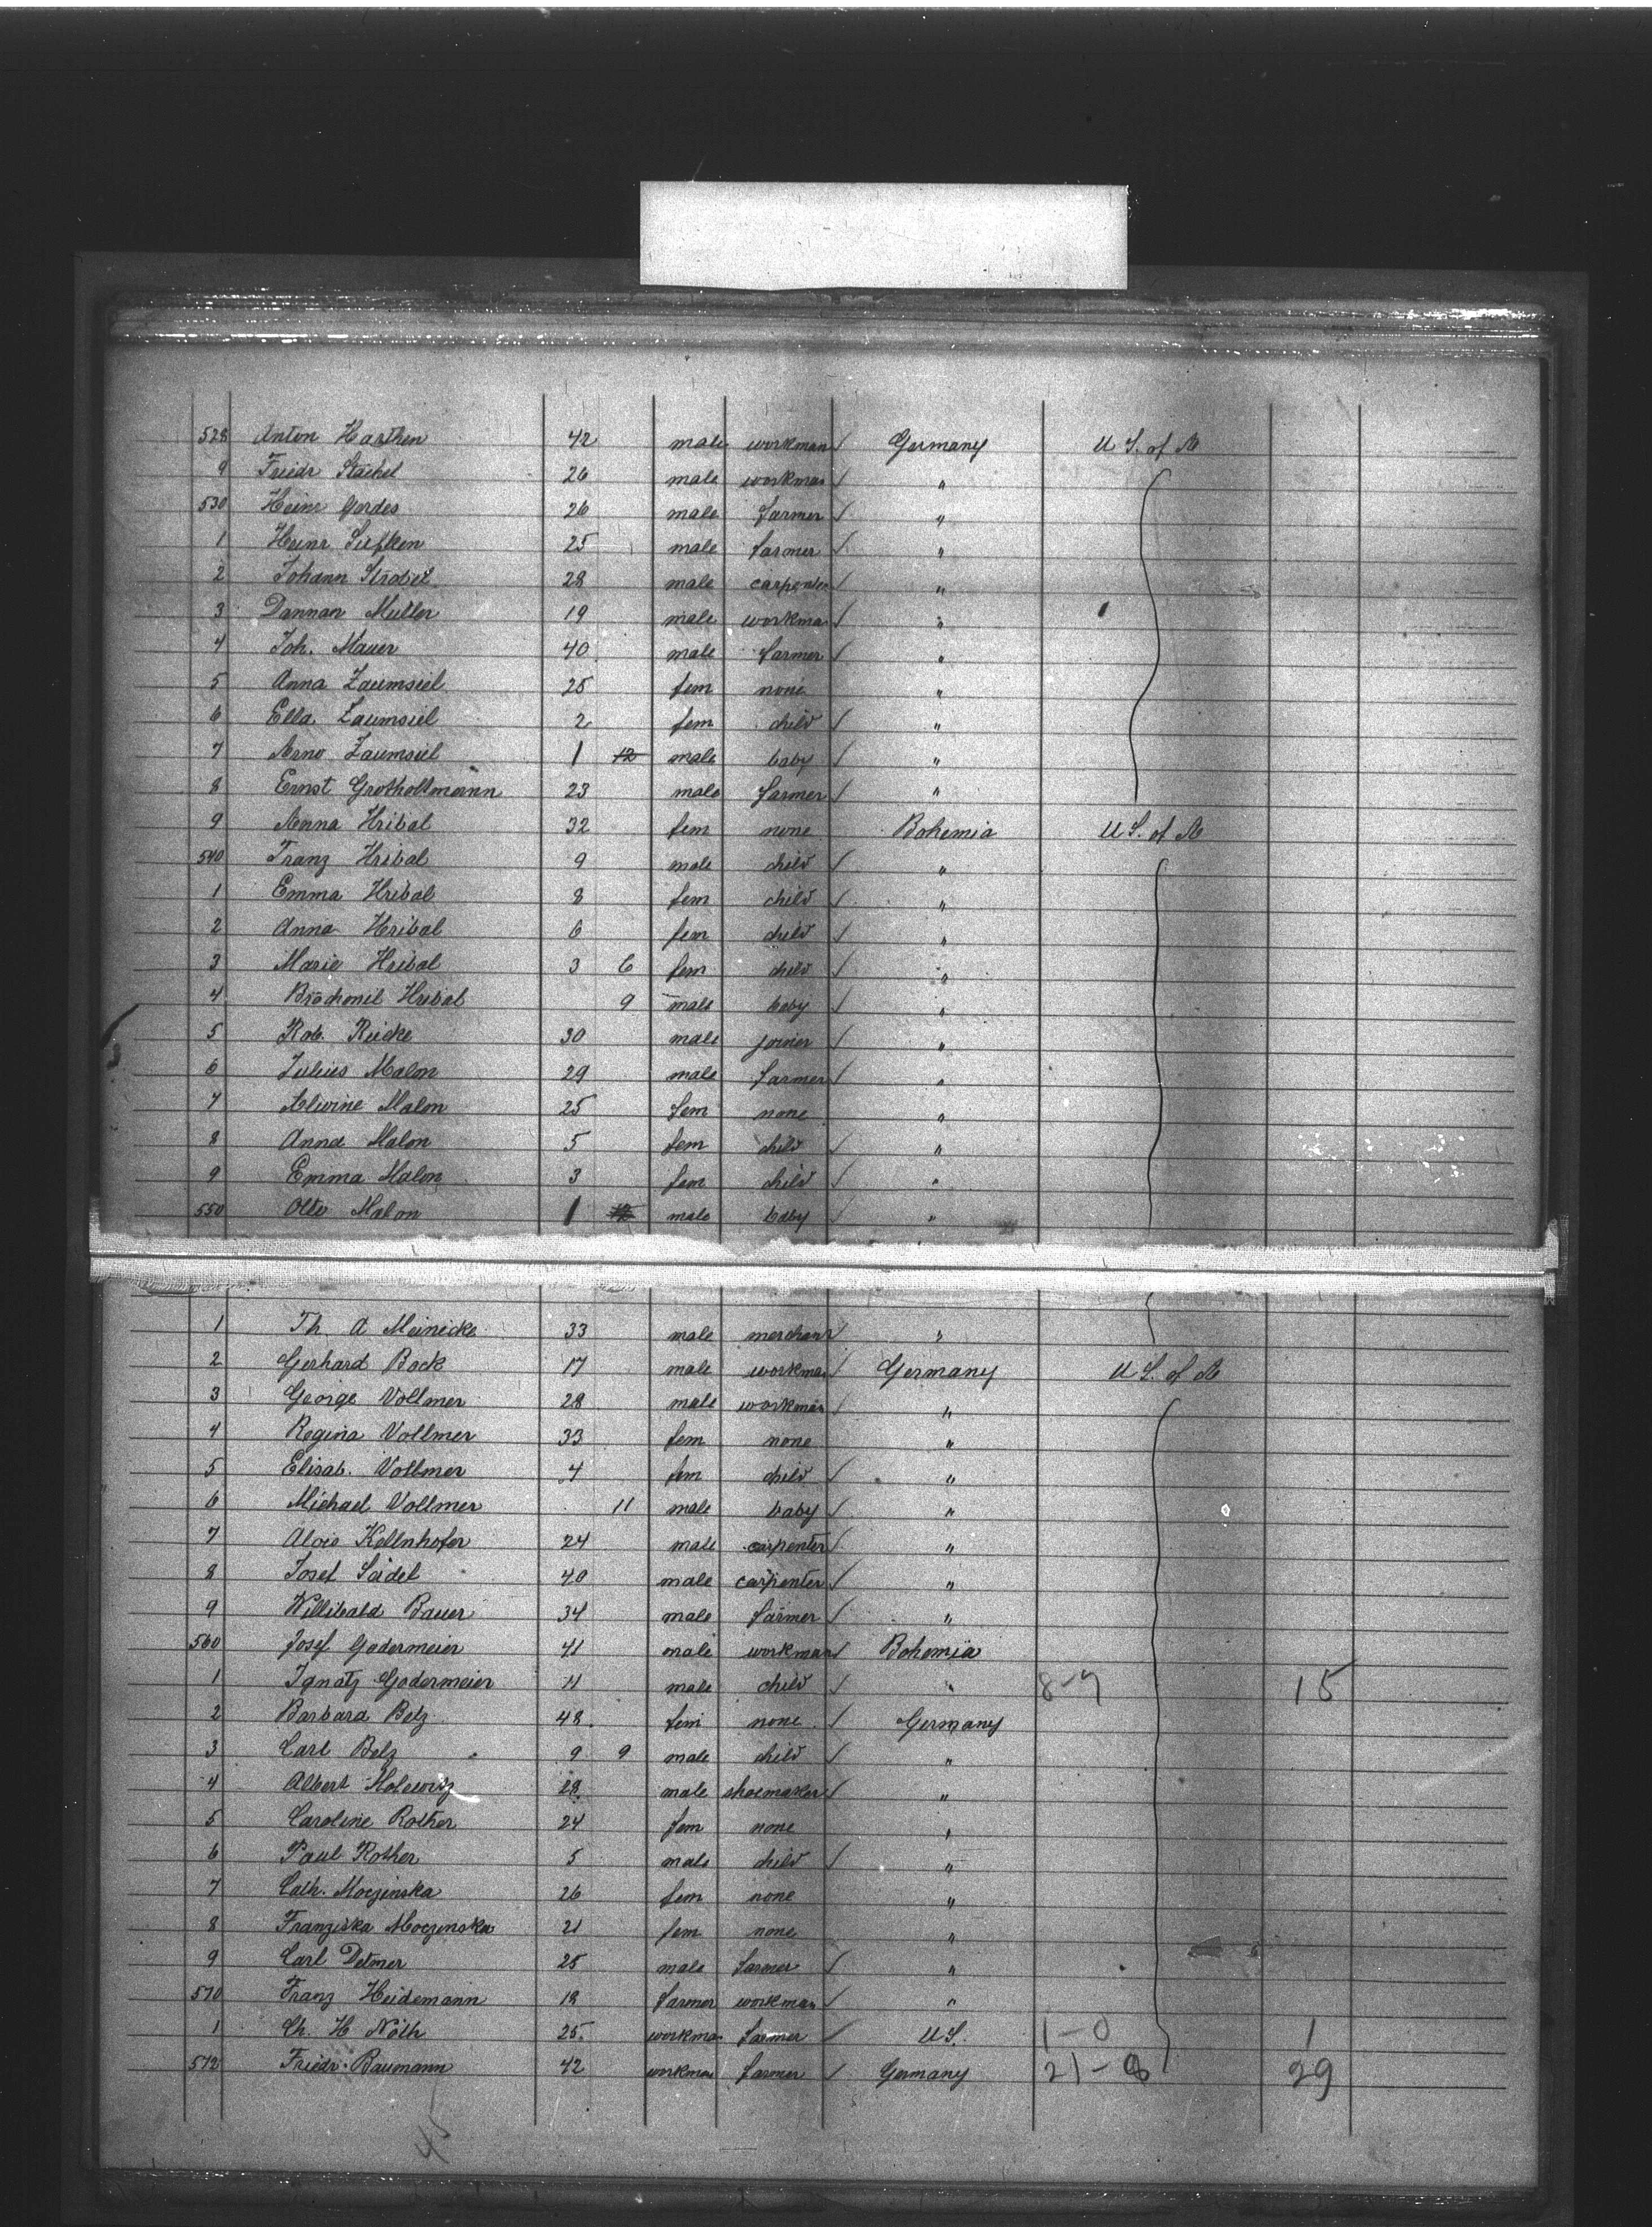 528 Anton Harthen 42 male workman / Germany U S. of A
9 Friedr Stächel 26 male workman / "
530 Heinr Gerdes 26 male farmer / "
1 Heinr Siefken 25 male farmer / "
2 Johann Strobel 28 male carpenter / "
3 Dannan Muller 19 male workma / "
4 Joh. Mauer 40 male farmer / "
5 Anna Zaumseil 25 fem none "
6 Ella Zaumseil 2 fem child / "
7 Arno Zaumseil 1 12 male baby / "
8 Ernst Grotholtmann 23 male farmer / "
9 Anna Hribal 32 fem none Bohemia U S. of A
540 Franz Hribal 9 male child / "
1 Emma Hribal 8 fem child / "
2 Anna Hribal 6 fem child / "
3 Marie Hribal 3 6 fem child / "
4 Hribal 9 male baby / "
5 Rob. Riecke 30 male joiner / "
6 Julius Malon 29 male farmer / "
7 Alwine Malon 25 fem none "
8 Anna Malon 5 fem child / "
9 Emma Malon 3 fem child / "
550 Otto Malon 1 12 male baby / "
1 Th. A Meinecke 33 male merchant / "
2 Gerhard Bock 17 male workman / Germany U S. of A
3 George Vollmer 28 male workman / "
4 Regina Vollmer 33 fem none "
5 Elisab. Vollmer 4 fem child / "
6 Michael Vollmer 11 male baby / "
7 Alois Kellnhofer 24 male carpenter / "
8 Josef Seidel 40 male carpenter / "
9 Willibald Bauer 34 male farmer / "
560 Josef Godermeier 41 male workman / Bohemia
1 Ignatz Godermeier 11 male child / " 8-7 15
2 Barbara Belz 48 fem none / Germany
3 Carl Belz 9 9 male child / "
4 Albert 28 male shoemaker / "
5 Caroline Rother 24 fem none "
6 Paul Rother 5 male child / "
7 Cath. Moczinska 26 fem none "
8 Franziska Moczinska 21 fem none "
9 Carl Detmer 25 male farmer / "
570 Franz Heidemann 18 farmer workman / "
1 Ch. H Nöth 25 workma farmer / U S. 1-0 1
572 Friedr. Baumann 42 workman farmer / Germany 21-8 29
45